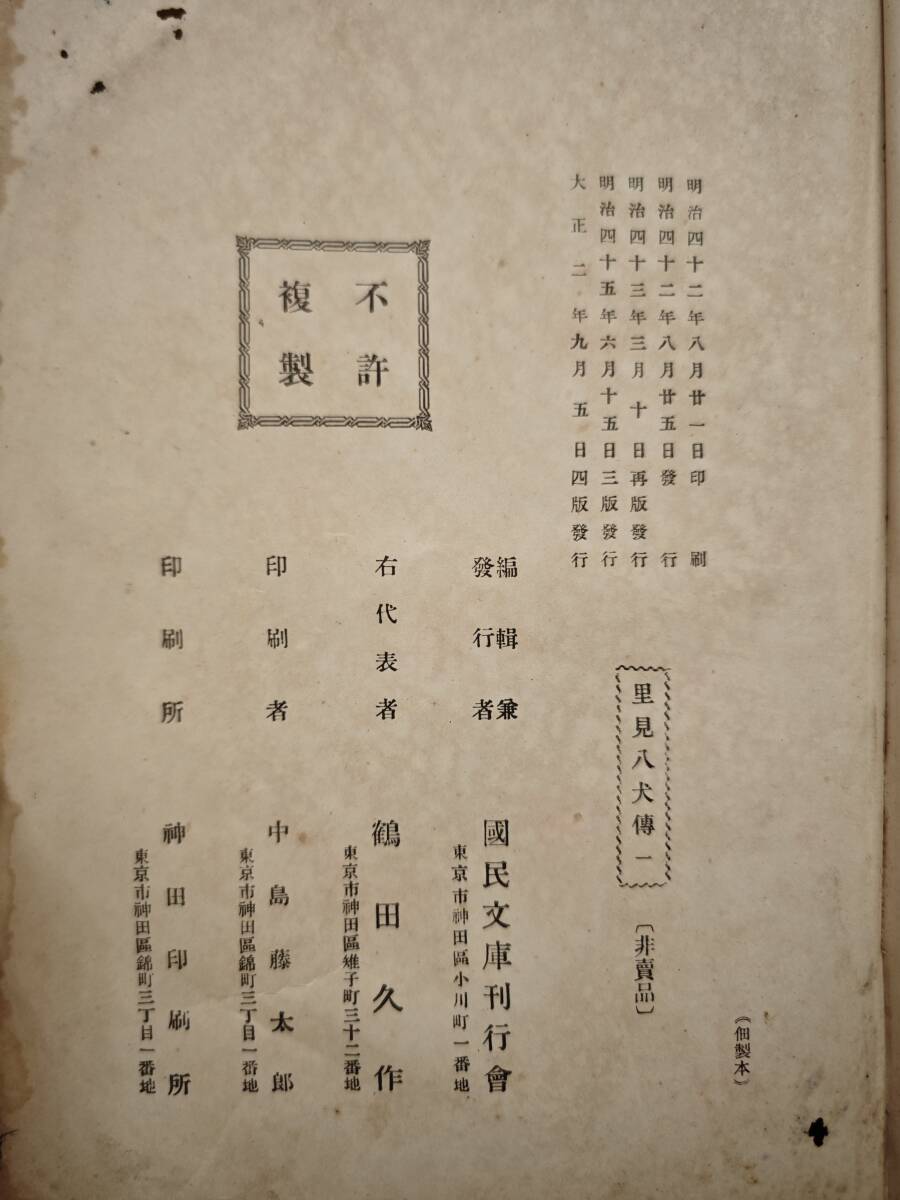 (佃製本)
明治四十二年八月廿一日印刷
明治四十二年八月廿五日發行
明治四十三年三月十日再版發行
明治四十五年六月十五日三版發行
大正二年九月五日四版發行
里見八犬傳一
〔非賣品〕
不許
複製
編輯兼
發行者
國民文庫刊行會
東京市神田區小川町一番地
右代表者
鶴田久作
東京市神田區雉子町三十二番地
印刷者
中島藤太郎
東京市神田區錦町三丁目一番地
印刷所
神田印刷所
東京市神田區錦町三丁目一番地